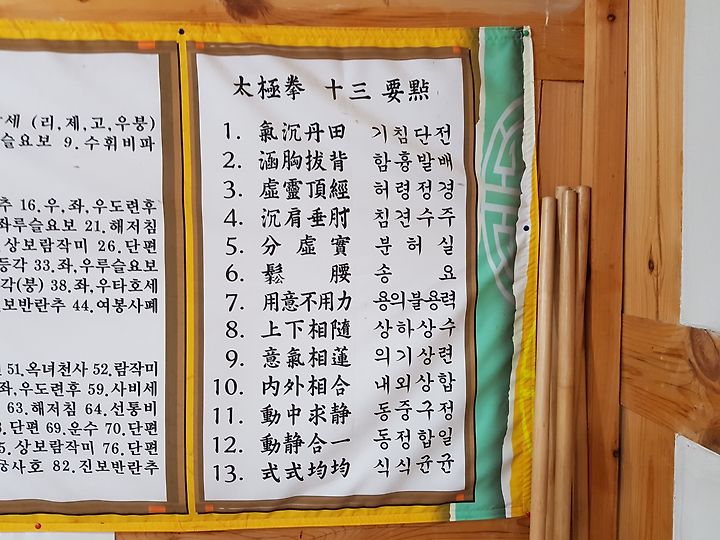 세 (리,제,고,우붕)
슬요보 9.수휘비파
추 16.우,좌,우도련후
좌루슬요보 21.해저침
.상보람작미 26.단편
등각 33.좌,우루슬요보
각(붕) 38.좌,우타호세
보반란추 44.여봉사폐
51.옥녀천사 52.람작미
좌,우도련후 59.사비세
63.해저침 64.선통비
.단편 69.운수 70.단편
5.상보람작미 76.단편
궁사호 82.진보반란추
太極拳 十三 要點
1. 氣沉丹田 기침단전
2. 涵胸拔背 함흉발배
3. 虛靈頂經 허령정경
4. 沉肩垂肘 침견수주
5. 分虛實 분허실
6. 鬆腰 송요
7. 用意不用力 용의불용력
8. 上下相隨 상하상수
9. 意氣相蓮 의기상련
10. 內外相合 내외상합
11. 動中求静 동중구정
12. 動静合一 동정합일
13. 式式均均 식식균균